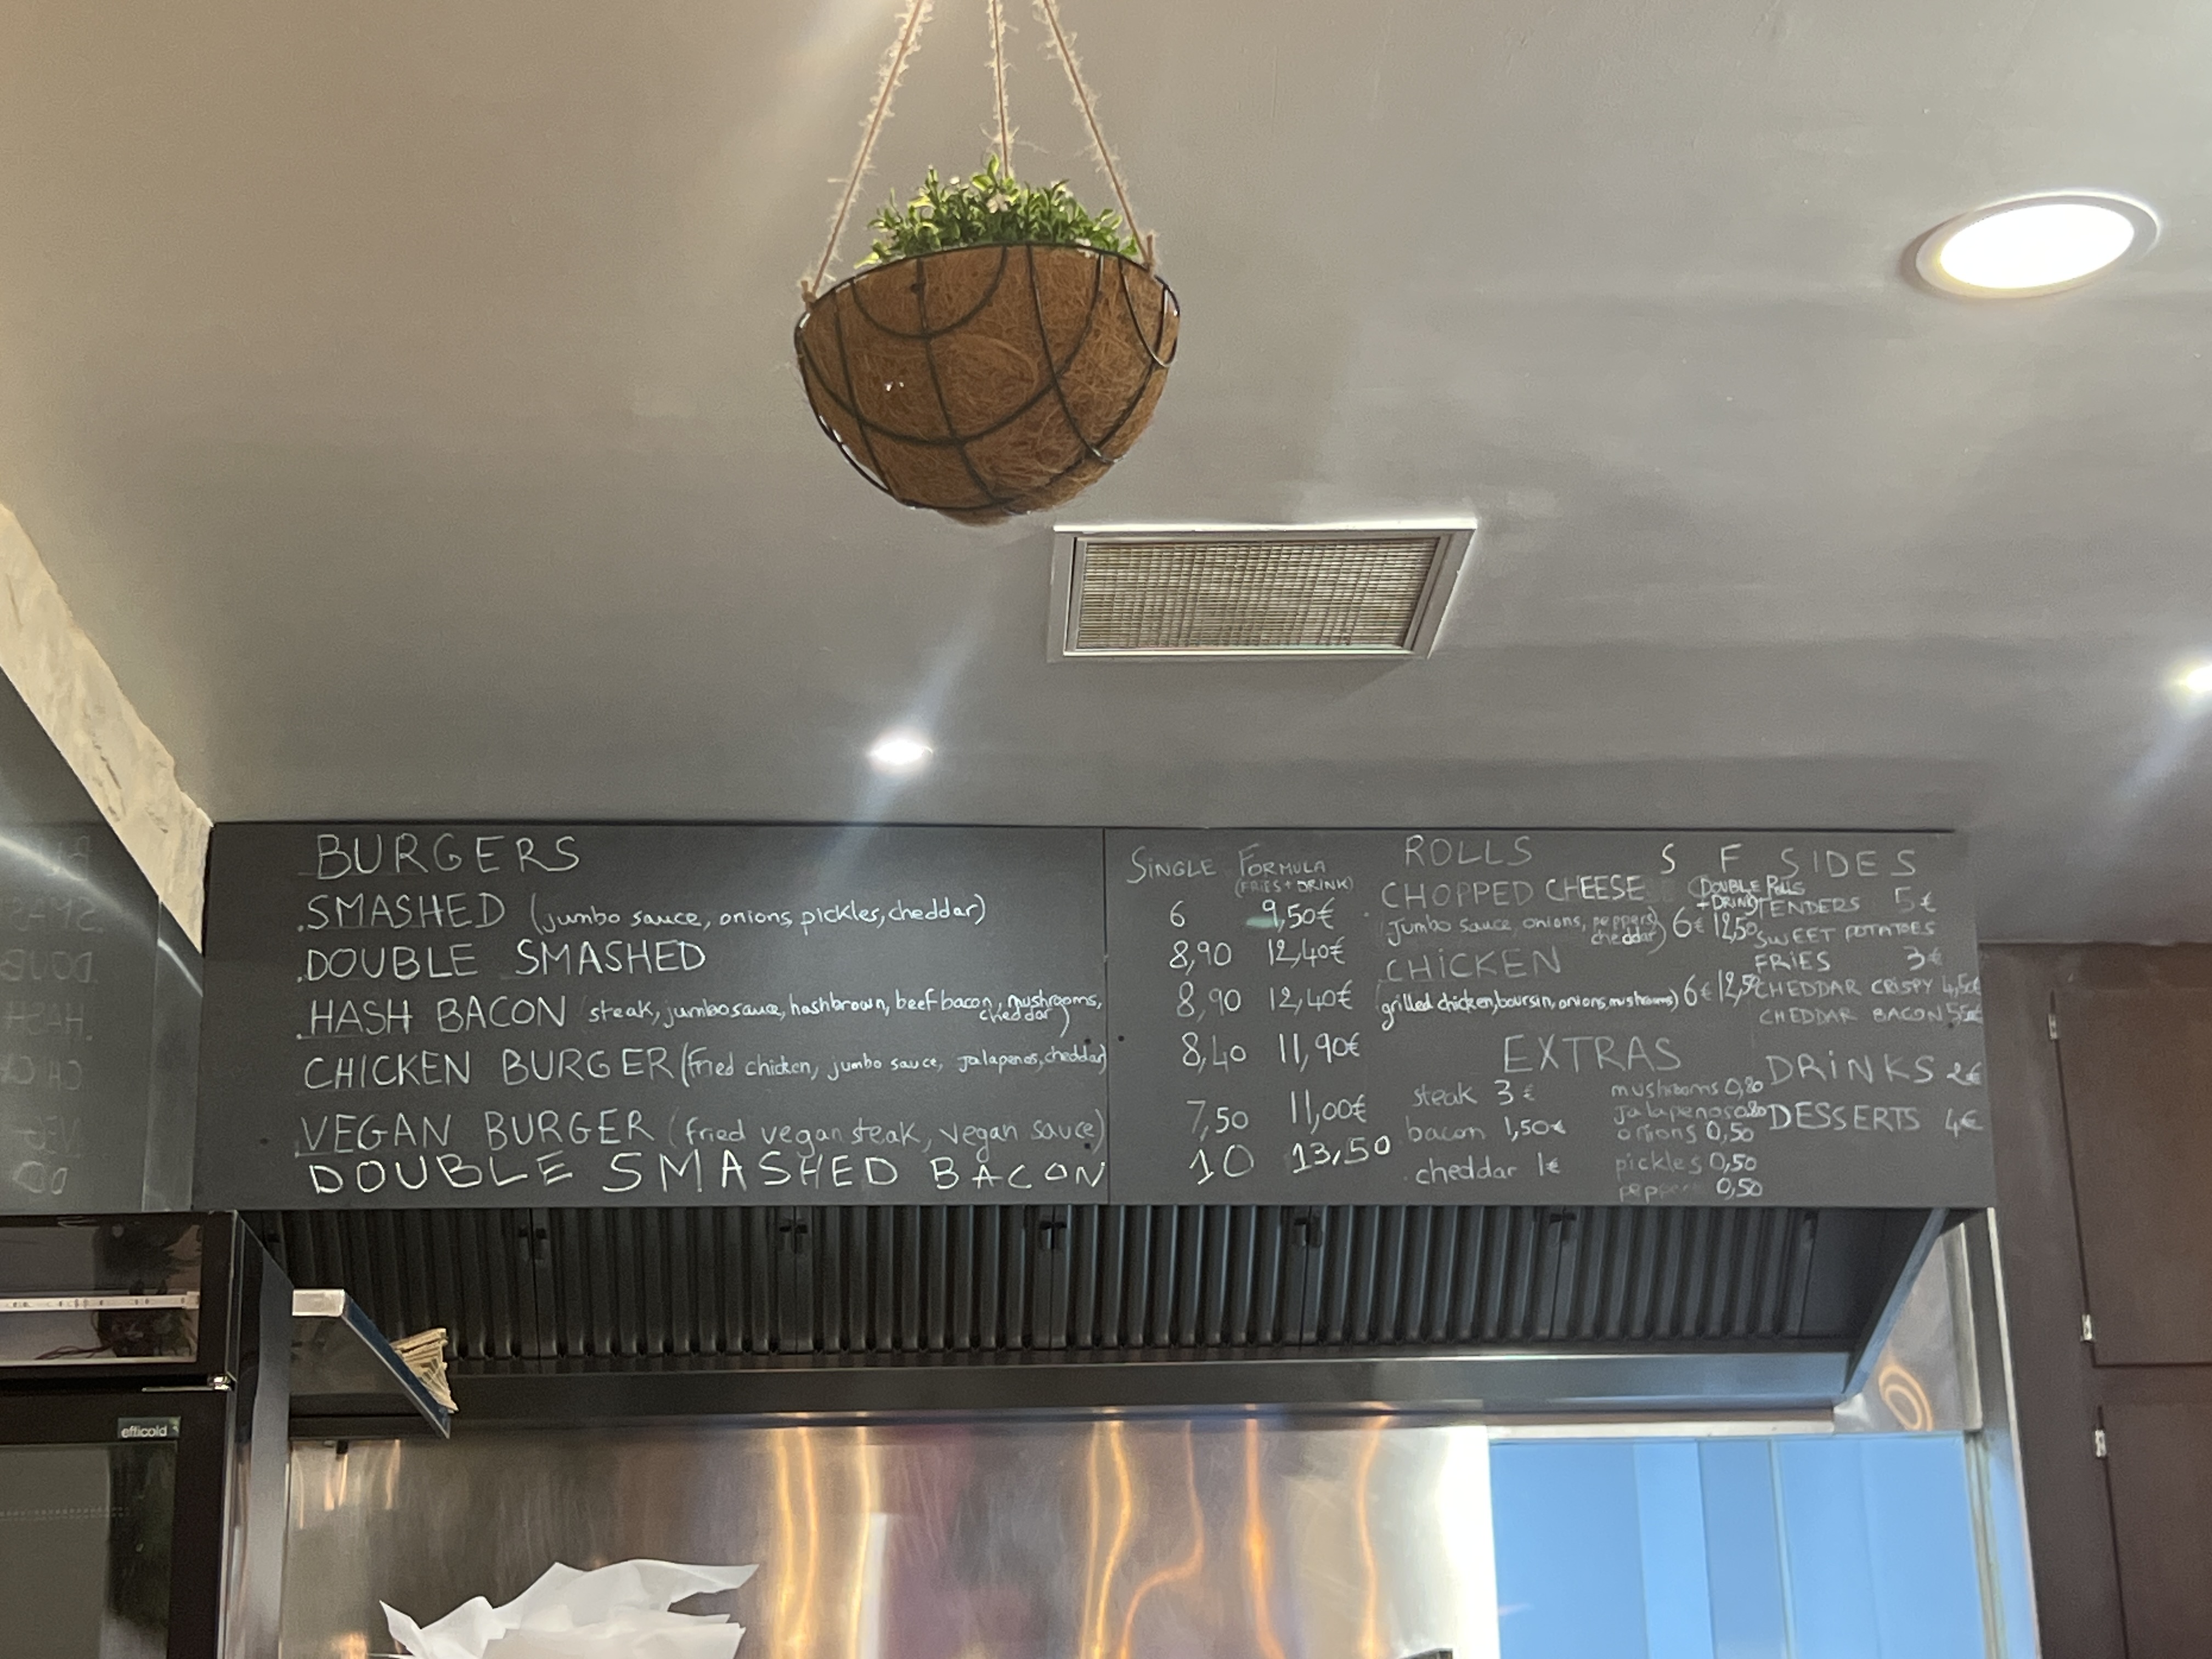 BURGERS
.SMASHED (jumbo sauce, onions, pickles, cheddar)
.DOUBLE SMASHED
.HASH BACON (steak, jumbo sauce, hashbrown, beef bacon, mushrooms,
cheddar)
.CHICKEN BURGER (fried chicken, jumbo sauce, jalapenos, cheddar)
.VEGAN BURGER (fried vegan steak, vegan sauce)
DOUBLE SMASHED BACON
SINGLE FORMULA
(FRIES + DRINK)
6 9,50€
8,90 12,40€
8,90 12,40€
8,40 11,90€
7,50 11,00€
10 13,50
ROLLS S F
DOUBLE Rolls
+ DRINK
.CHOPPED CHEESE
(Jumbo sauce, onions, peppers, 6€ 12,50
cheddar)
.CHICKEN
(grilled chicken, boursin, onions, mushrooms) 6€ 12,50
EXTRAS
steak 3€
bacon 1,50€
.cheddar 1€
mushrooms 0,80
jalapenos 0,80
onions 0,50
pickles 0,50
pepper 0,50
SIDES
TENDERS 5€
SWEET POTATOES
FRIES 3€
CHEDDAR CRISPY 4,50€
CHEDDAR BACON
DRINKS 2€
DESSERTS 4€
efficold